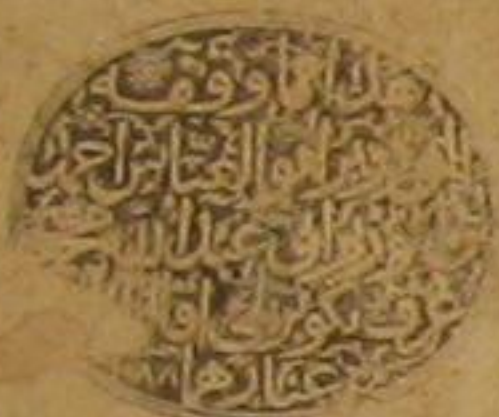 هذا ما وقفه
الوزير ابو العباس احمد
بن الوزير ابي عبد الله
عرف بكوبريلي اقال
عثارهما